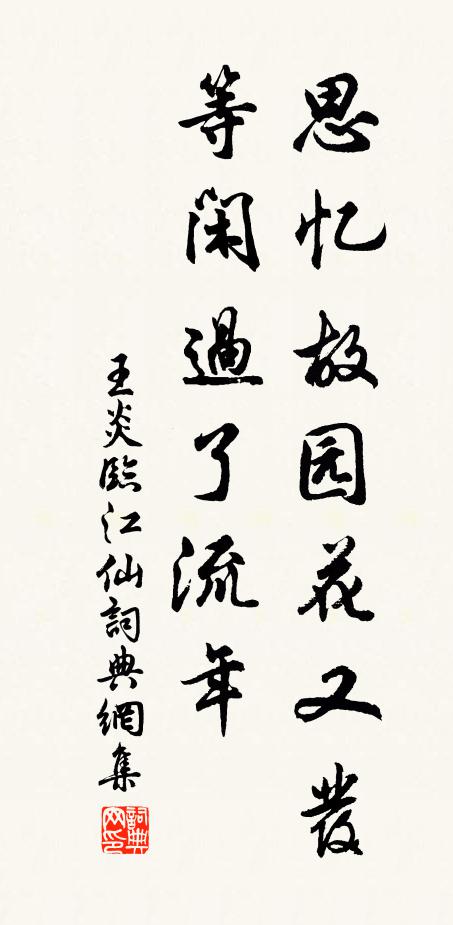 思忆故园花又發
等閑過了流年
王炎臨江仙詞典網集
詞典
网印